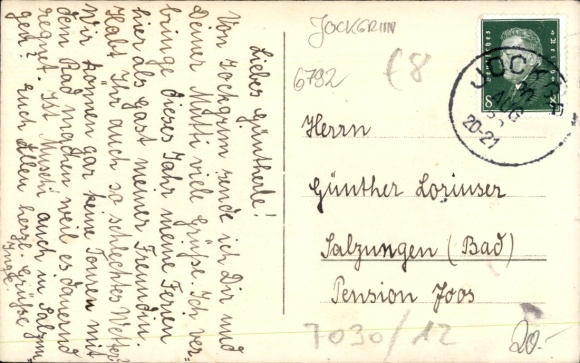 Lieber Güntherle!
Von Jockgrim sende ich Dir und
Deiner Mutti viele Grüße. Ich ver-
bringe dieses Jahr meine Ferien
hier als Gast meiner Freundin.
Habt Ihr auch so schlechtes Wetter
Wir können gar keine Touren mit
dem Rad machen weil es dauernd
regnet. Ist Muschi auch in Salzun
gen? Euch Allen herzl. Grüße
JOCKGRIM
6792
€8
DEUTSCHES REICH
8
JOCKGRIM
20-21
Herrn
Günther Lorinser
Salzungen (Bad)
Pension Joos
7030/12
20.-